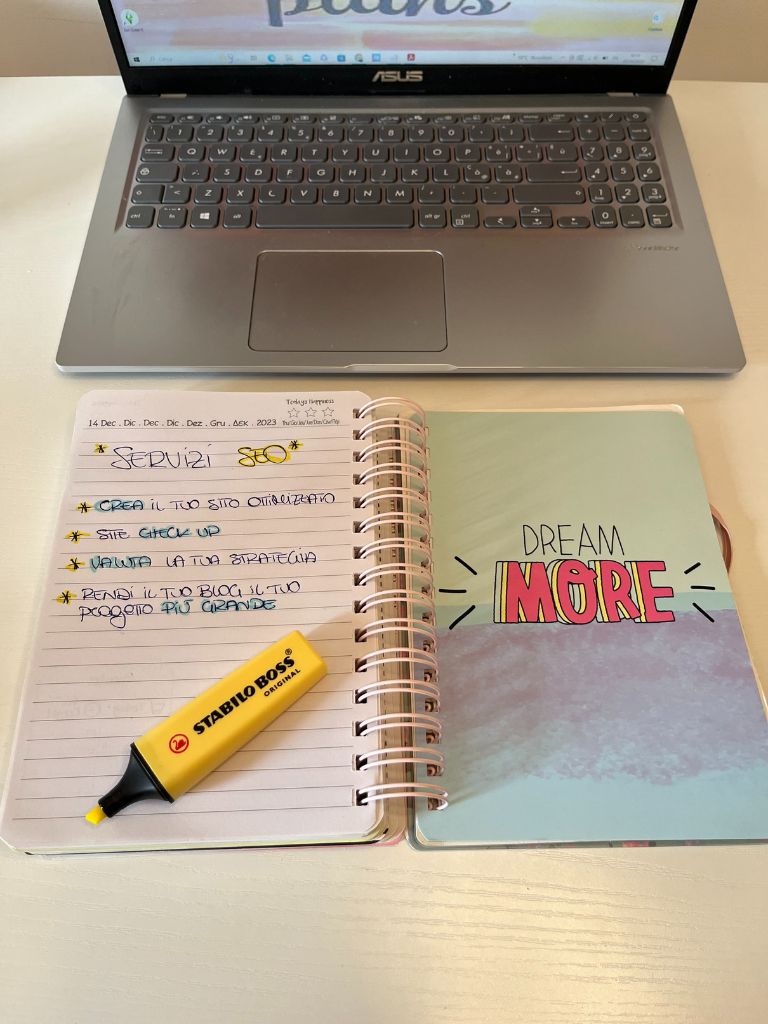 plans
ASUS
Q W E R T Y U I O P
A S D F G H J K L
Z X C V B N M
ctrl fn alt alt gr ctrl
Today's Happiness
14 Dec . Dic . Dec . Dic . Dez . Gru . ΔΕΚ . 2023
* SERVIZI SEO *
* CREA IL TUO SITO OTTIMIZZATO
* SITE CHECK UP
* VALUTA LA TUA STRATEGIA
* RENDI IL TUO BLOG IL TUO
progetto PIÙ GRANDE
STABILO BOSS®
ORIGINAL
DREAM
MORE